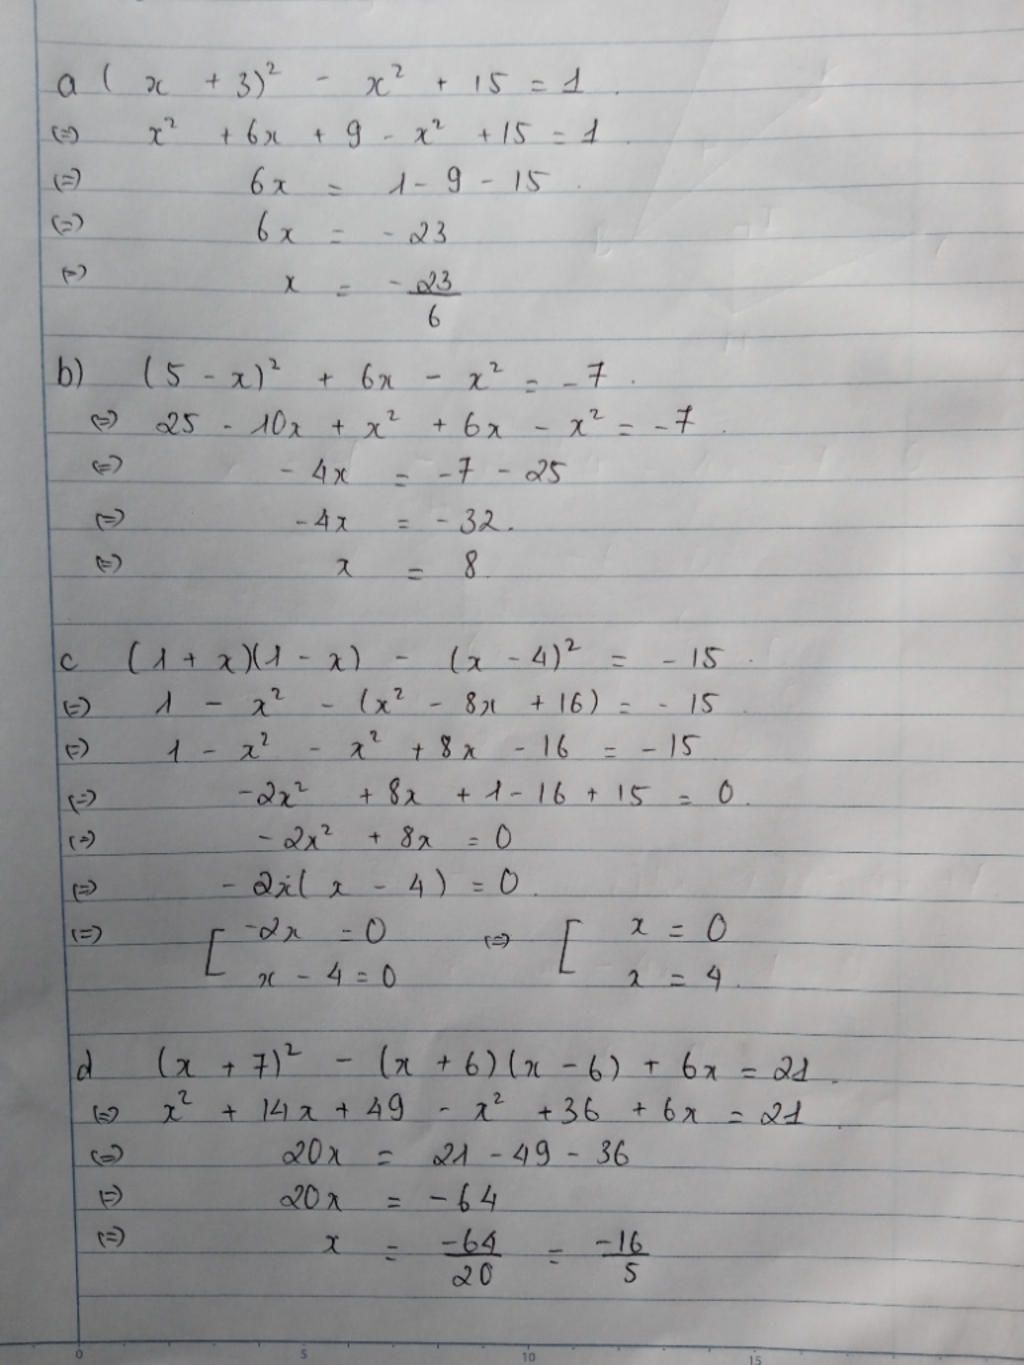 a ( x + 3)² - x² + 15 = 1 .
(=) x² + 6x + 9 - x² + 15 = 1
(=) 6x = 1 - 9 - 15 .
(=) 6x = - 23
(=) x = - 23/6
b) (5 - x)² + 6x - x² = -7 .
(=) 25 - 10x + x² + 6x - x² = -7 .
(=) - 4x = -7 - 25
(=) -4x = -32.
(=) x = 8.
c (1 + x)(1 - x) - (x - 4)² = - 15 .
(=) 1 - x² - (x² - 8x + 16) = - 15
(=) 1 - x² - x² + 8x - 16 = -15
(=) -2x² + 8x + 1 - 16 + 15 = 0.
(=) - 2x² + 8x = 0
(=) - 2x( x - 4) = 0.
(=) [ -2x = 0 (=) [ x = 0
x - 4 = 0 x = 4.
d (x + 7)² - (x + 6)(x - 6) + 6x = 21.
(=) x² + 14x + 49 - x² + 36 + 6x = 21 .
(=) 20x = 21 - 49 - 36
(=) 20x = -64
(=) x = -64/20 = -16/5
0 5 10 15